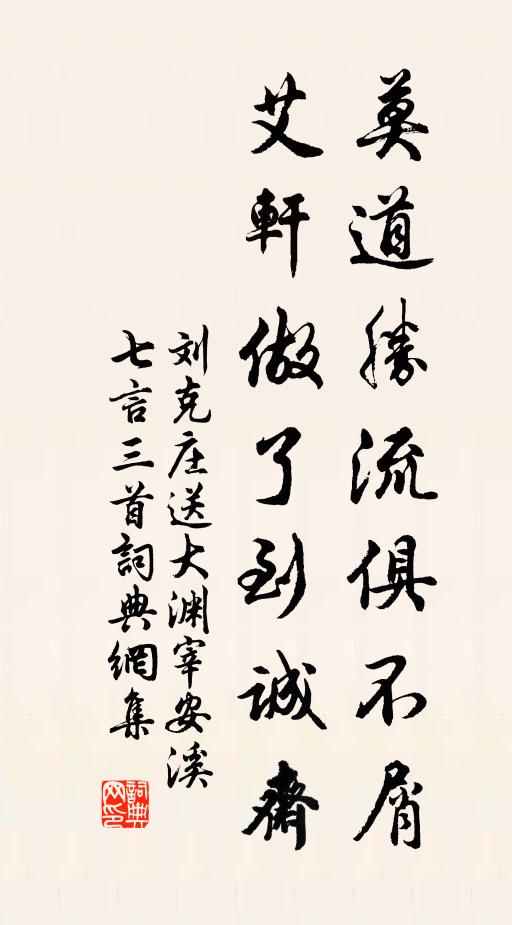 莫道勝流俱不屑
艾軒做了到誠齋
刘克庄送大渊宰安溪
七言三首詞典網集
詞典
网印